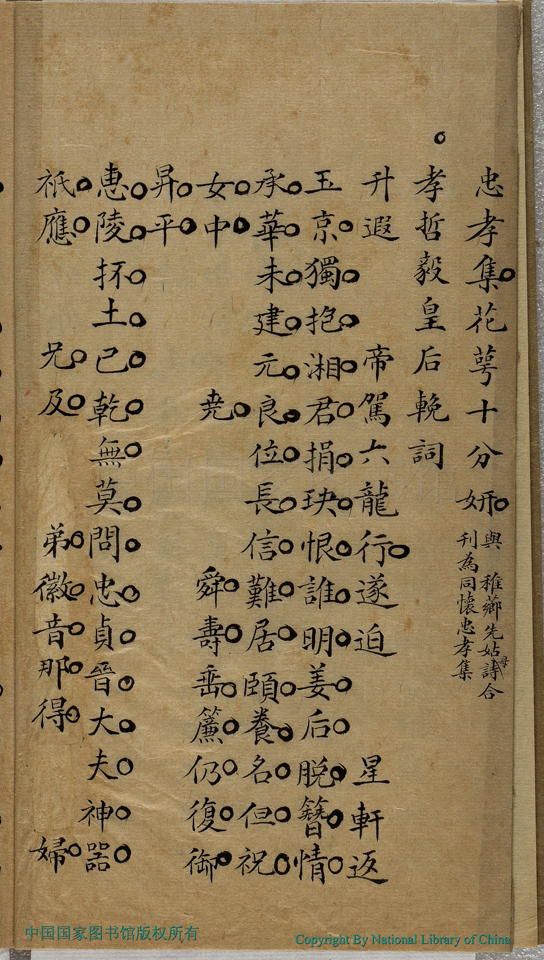 忠孝集花萼十分妍
與稚薌先姑母詩合
刊為同懷忠孝集
孝哲毅皇后輓詞
升遐 帝駕六龍行遂迫 星軒返
玉京獨抱湘君捐玦恨誰明姜后脫簪情
承華未建元良位長信難居頤養名但祝
女中 堯 舜壽垂簾仍復御
昇平
惠陵抔土已乾無莫問忠貞晉大夫神器
祇應 兄及 弟徽音那得 婦
中国国家图书馆版权所有
Copyright By National Library of China